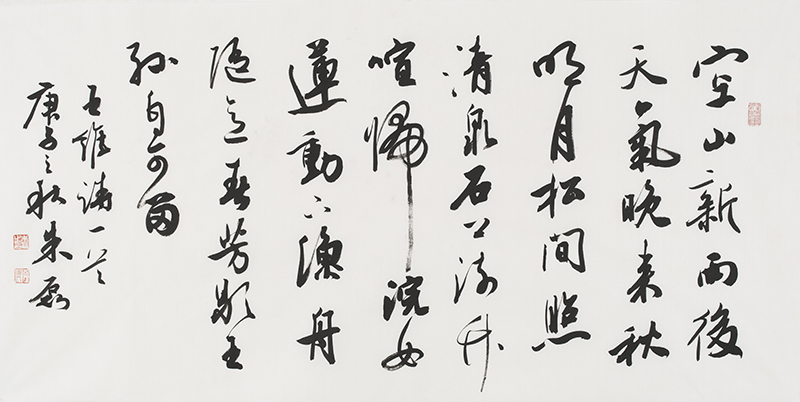 空山新雨後
天氣晚来秋
明月松间照
清泉石上流竹
喧歸浣女
蓮動下漁舟
随意春芳歇王
孙自可留
王維詩一首
庚子之秋朱磊